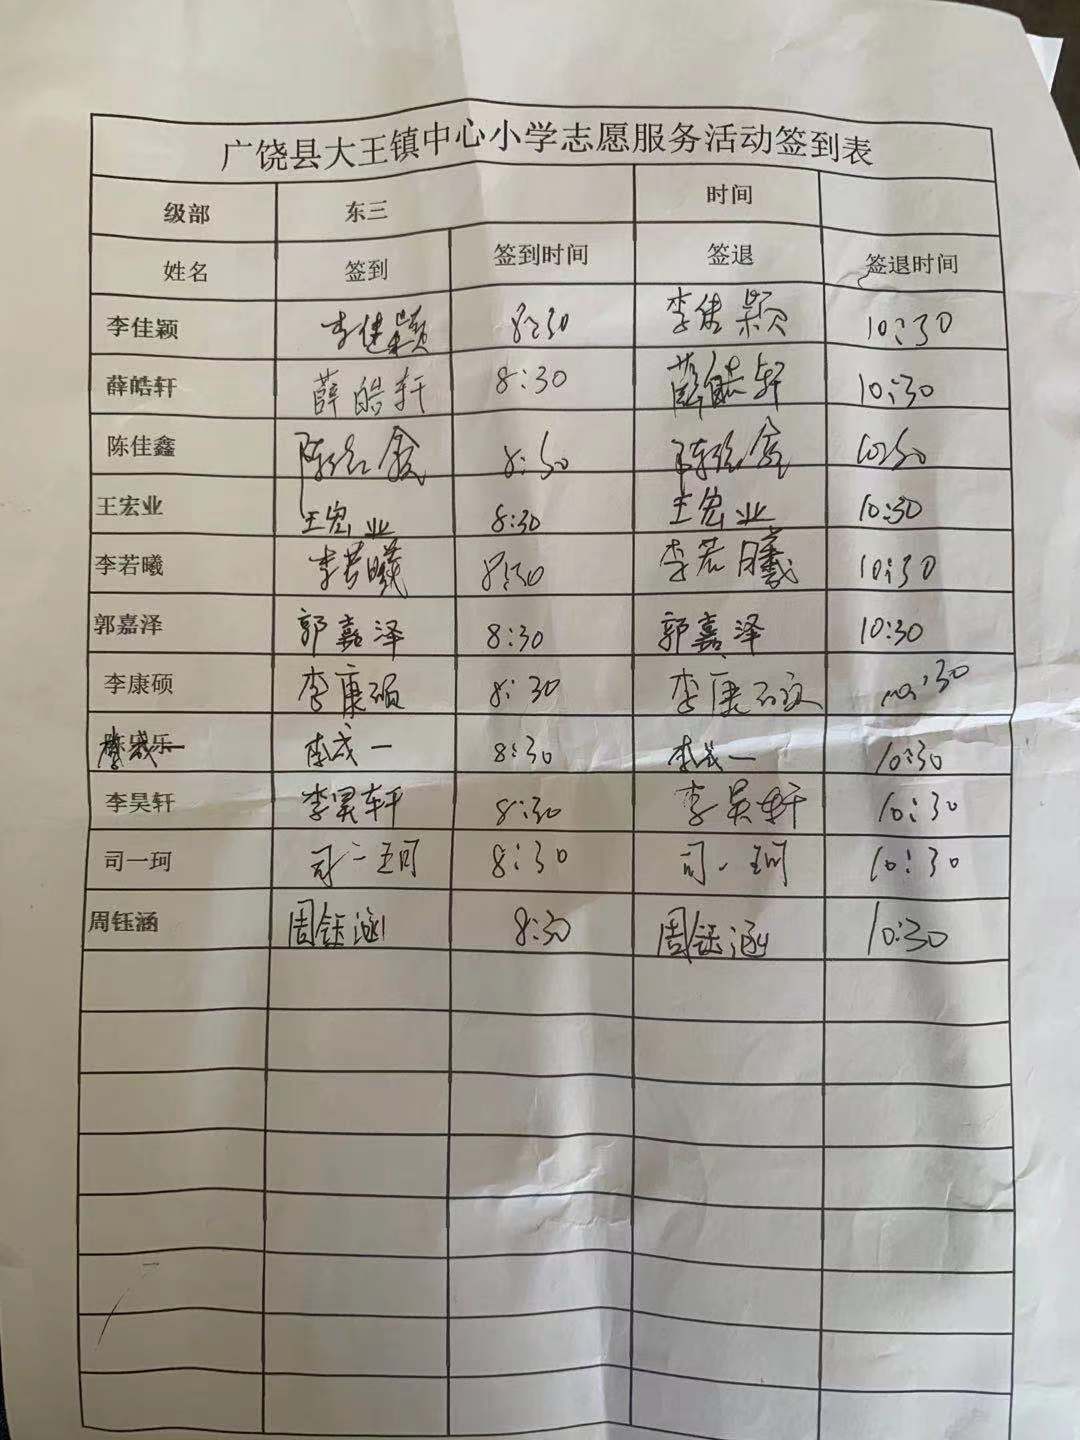 广饶县大王镇中心小学志愿服务活动签到表
级部 东三 时间
姓名 签到 签到时间 签退 签退时间
李佳颖 李佳颖 8:30 李佳颖 10:30
薛皓轩 薛皓轩 8:30 薛皓轩 10:30
陈佳鑫 陈佳鑫 8:30 陈佳鑫 10:30
王宏业 王宏业 8:30 王宏业 10:30
李若曦 李若曦 8:30 李若曦 10:30
郭嘉泽 郭嘉泽 8:30 郭嘉泽 10:30
李康硕 李康硕 8:30 李康硕 10:30
李成一 李成一 8:30 李成一 10:30
李昊轩 李昊轩 8:30 李昊轩 10:30
司一珂 司一珂 8:30 司一珂 10:30
周钰涵 周钰涵 8:30 周钰涵 10:30